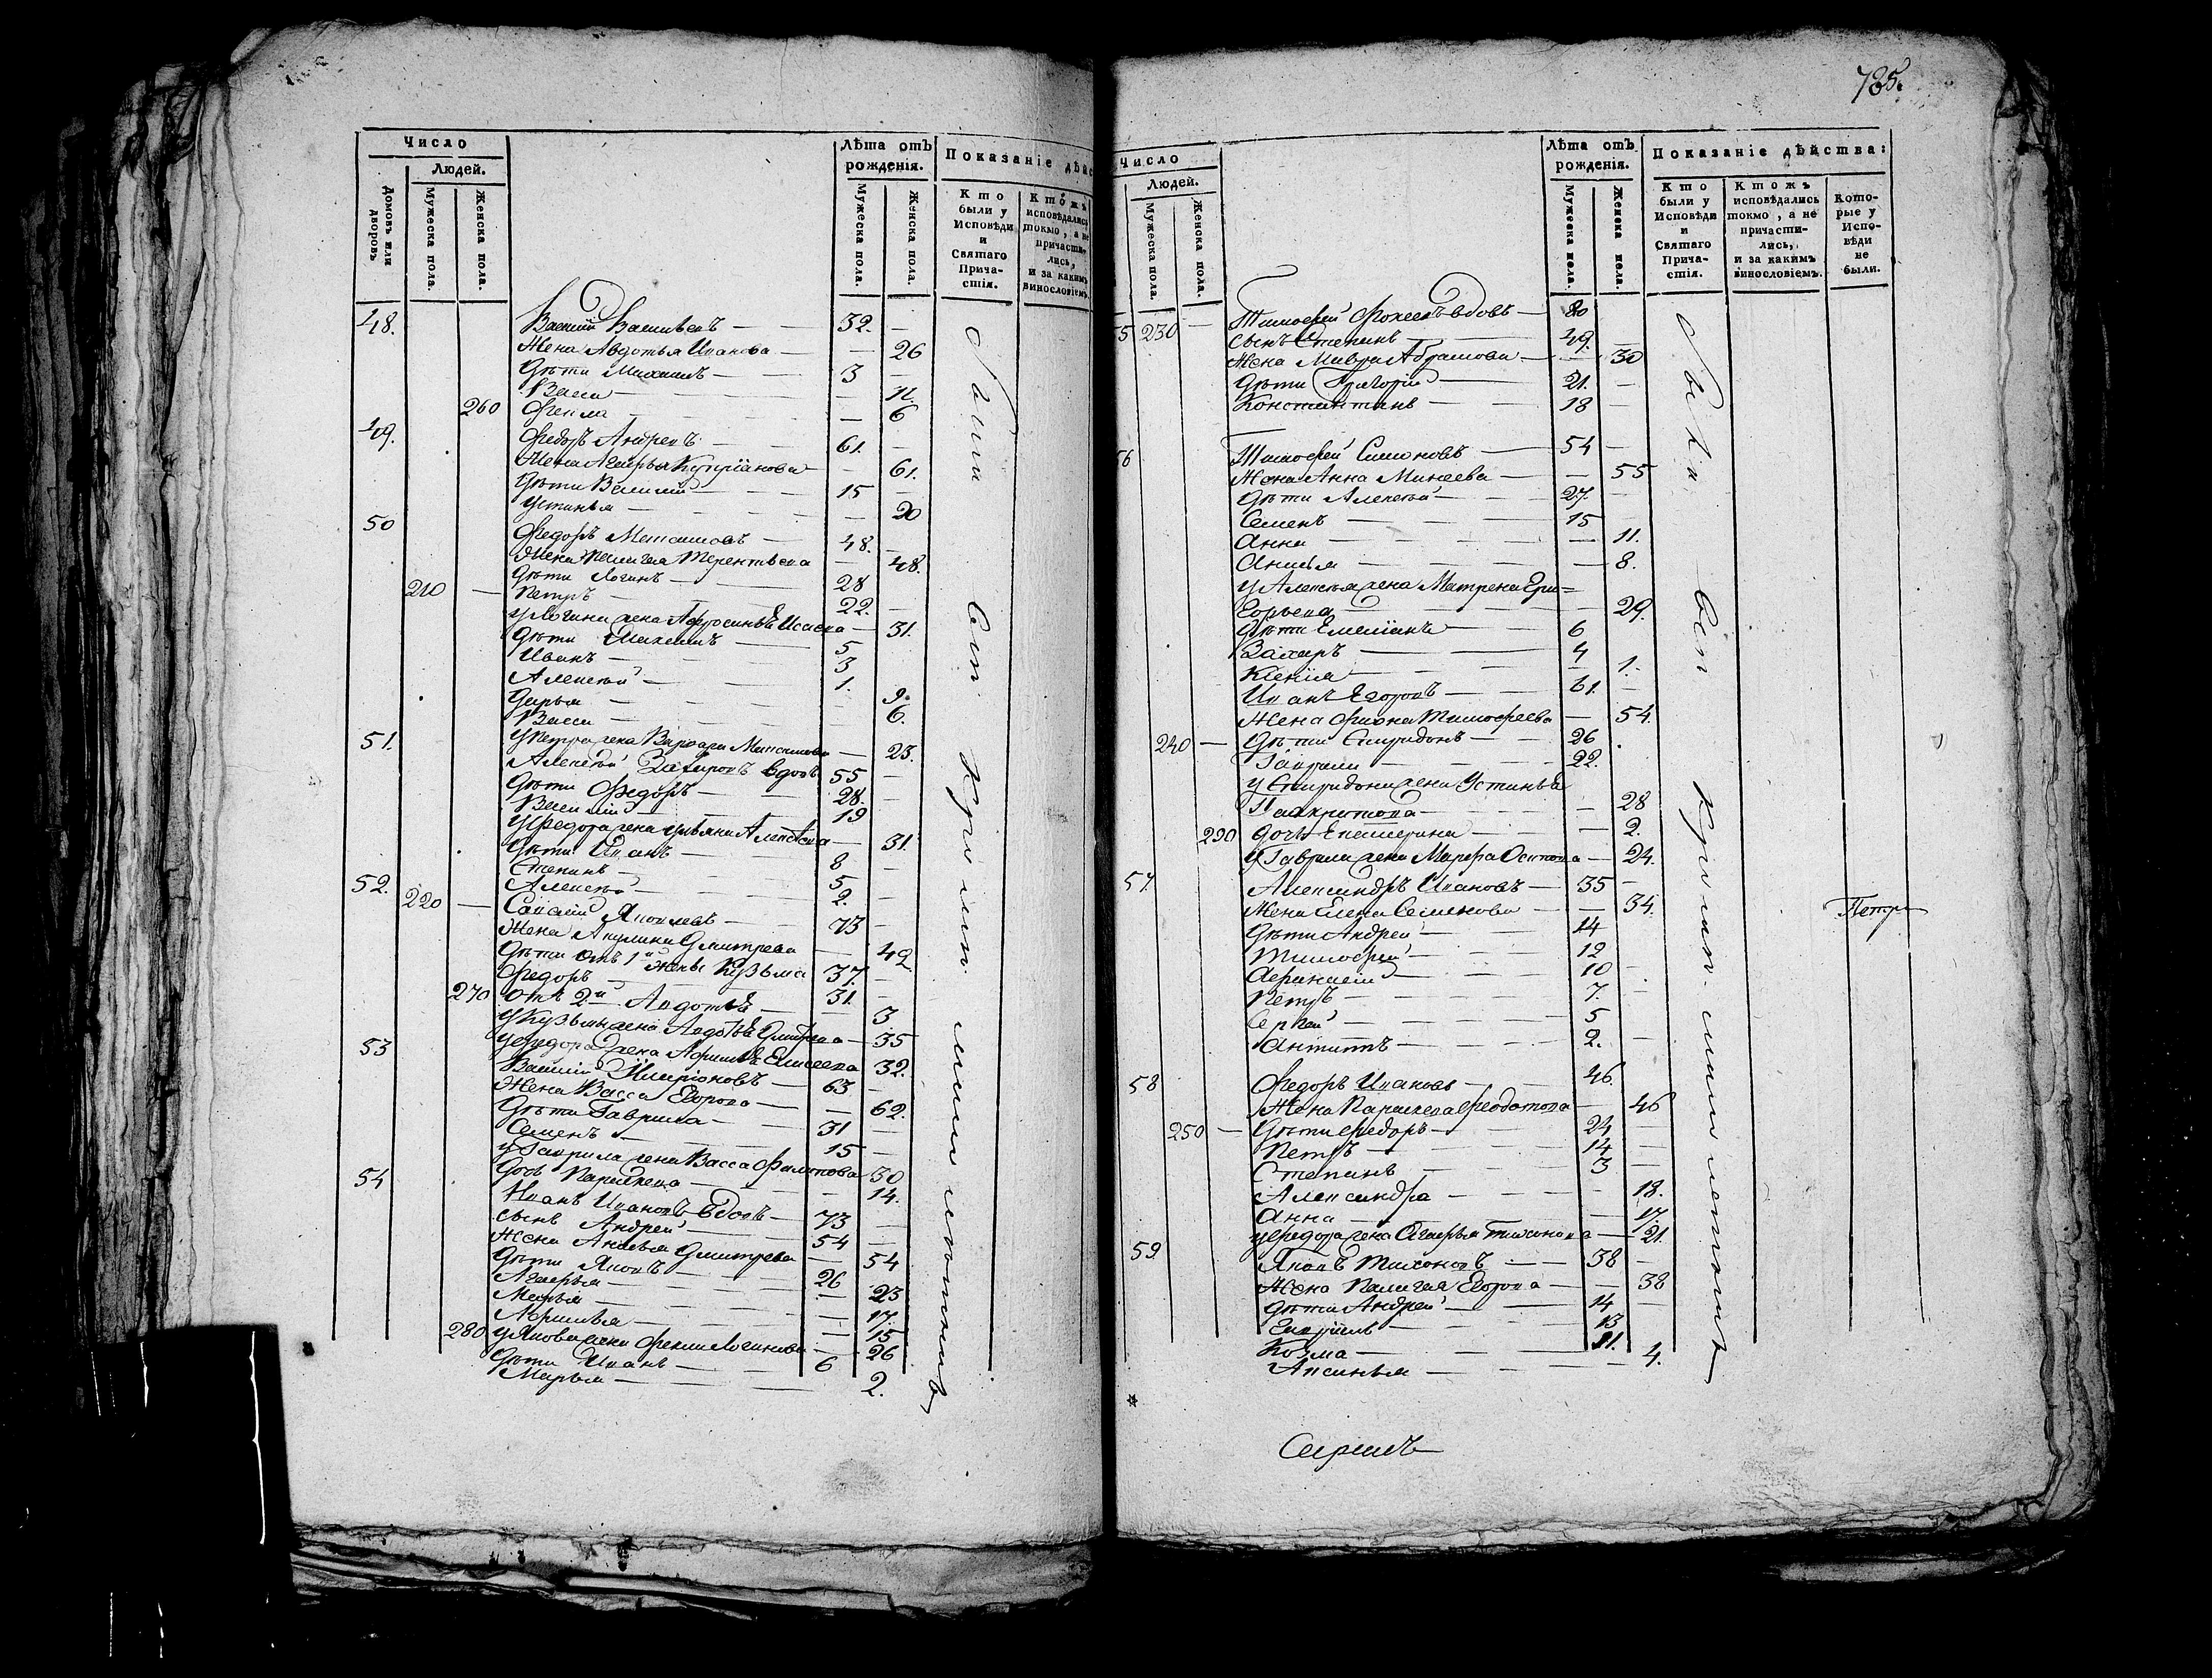 785.
Число
Людей.
Домовъ или дворовъ
Мужеска пола.
Женска пола.
Лѣта отъ рожденія.
Мужеска пола.
Женска пола.
Показаніе дѣйс
Кто были у Исповѣди и Святаго Прича-стія.
Ктожъ исповѣдались токмо, а не причасти-лись, и за какимъ винословіемъ
48. Василій Васильевъ — 32. —
Жена Авдотья Иванова — 26
Дѣти Михаилъ — 3 —
Васса — 11.
260 Фекла — 6
49. Федоръ Андреевъ — 61. —
Жена Агафья Купріанова — 61.
Дѣти Василій — 15 —
Устинья — 20
50 Федоръ — 48. —
Жена Пелагея Терентьева — 48.
Дѣти Логинъ — 28
210 — Петръ — 22. —
у Логина жена Афросинья Исаева — 31.
Дѣти Михаилъ — 5
Иванъ — 3
Алексѣй — 1.
Дарья — 9.
Васса — 6.
у Петра жена Варвара Максимова — 23.
51. Алексѣй Захаровъ вдовъ 55 —
Дѣти Федоръ — 28. —
Василій — 19
у Федора жена Ульяна Алексѣева — 31.
Дѣти Иванъ — 8 —
Степанъ — 5
220 — Алексѣй — 2.
52. Савелій Яковлевъ — 73 —
Жена Акулина Дмитрева — 42
Дѣти отъ 1й жены Кузьма 37. —
Федоръ — 31. —
270 отъ 2й Авдотья — 3
у Кузьмы жена Авдотья Дмитрева — 35
у Федора жена Афимья Елисеева 32.
53 Василій Иларіоновъ — 63 —
Жена Васса Егорова — 62.
Дѣти Гаврила — 31 —
Семенъ — 15 —
у Гаврила жена Васса Филипова 30
Дочь Парасковья — 14.
54 Иванъ Ивановъ вдовъ — 73 —
сынъ Андрей — 54 —
Жена Анисья Дмитрева — 54
Дѣти Яковъ — 26
Агафья — 23
Марья — 17.
Афимья — 15
280 у Якова жена Фекла Логинова — 26
Дѣти Иванъ — 6
Марья — 2.
Число
Людей.
Мужеска пола.
Женска пола.
Лѣта отъ рожденія.
Мужеска пола.
Женска пола.
Показаніе дѣйства:
Кто были у Исповѣди и Святаго Прича-стія.
Ктожъ исповѣдались токмо, а не причасти-лись, и за какимъ винословіемъ.
Кото-рые у Испо-вѣди не были.
5 230 — Тимофей вдовъ — 80
сынъ Степанъ — 49. —
Жена Мавра Абрамова — 30
Дѣти Григорій — 21. —
Константинъ — 18 —
56 Тимофей Симоновъ — 54 —
Жена Анна Минеева — 55
Дѣти Алексѣй — 27. —
Семенъ — 15 —
Анна — 11.
Анисья — 8.
у Алексѣя жена Матрена Гри=
горьева — 29.
Дѣти Емеліанъ — 6
Захаръ — 4
Ксенія — 1.
Иванъ Егоровъ — 61. —
Жена Фиона Тимофеева — 54.
240 — Дѣти Спиридонъ — 26
Гаврила — 22.
у Спиридона жена Устинья
Панкратова — 28
290 дочь Екатерина — 2.
у Гаврила жена Марфа Осипова — 24.
57. Александръ Ивановъ — 35 —
Жена Елена Семенова — 34.
Дѣти Андрей — 14
Тимофей — 12
Афанасій — 10 —
Петръ — 7. —
Сергей — 5
Антипъ — 2. —
58 Федоръ Ивановъ — 46.
Жена Парасковья Федотова — 46
250 — Дѣти Федоръ — 24 —
Петръ — 14 —
Степанъ — 3 —
Александра — 18.
Анна — 17
у Федора жена Агафья Тихонова — 21.
59. Яковъ Тихоновъ — 38 —
Жена Пелагея Егорова — 38
Дѣти Андрей — 14 —
Гавріилъ — 13
Козма — 11.
Аксинья — 4.
Петр